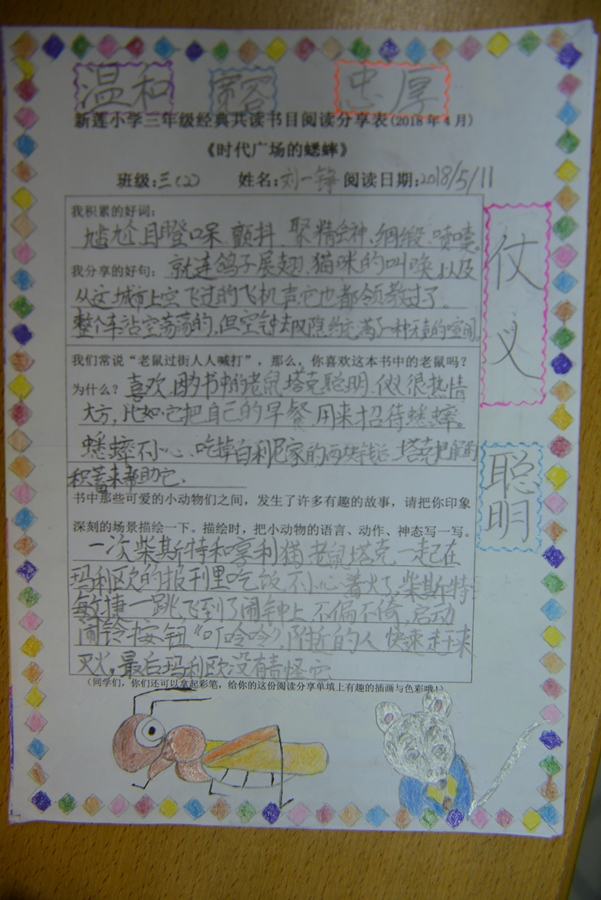 温和 忠厚
新莲小学三年级经典共读书目阅读分享表(2018年4月)
《时代广场的蟋蟀》
班级:三(2) 姓名:刘一铮 阅读日期:2018/5/11
我积累的好词:
尴尬、目瞪口呆、颤抖、聚精会神、绸缎、喷嚏。
我分享的好句: 就连鸽子展翅,猫咪的叫唤,以及
从这城市上空飞过的飞机声,它也都领教过了。
整个车站空荡荡的,但空气中却隐约充满了一种
仗义
我们常说“老鼠过街人人喊打”,那么,你喜欢这本书中的老鼠吗?
为什么? 喜欢,因为书中的老鼠塔克聪明、仗义很热情
大方,比如:它把自己的早餐用来招待蟋蟀。
蟋蟀不小心吃掉白利尼家的两块钱后,塔克把
积蓄来帮助它。
聪明
书中那些可爱的小动物们之间,发生了许多有趣的故事,请把你印象
深刻的场景描绘一下。描绘时,把小动物的语言、动作、神态写一写。
一次柴斯特和亨利猫、老鼠塔克,一起在
玛利欧的报刊里吃饭,不小心着火了,柴斯特
敏捷一跳,飞到了闹钟上,不偏不倚,启动
闹铃按钮“叮呤呤”,附近的人快速走下来
灭火,最后玛利欧没有责怪它
(同学们,你们还可以拿起彩笔,给你的这份阅读分享单填上有趣的插画与色彩哦!)